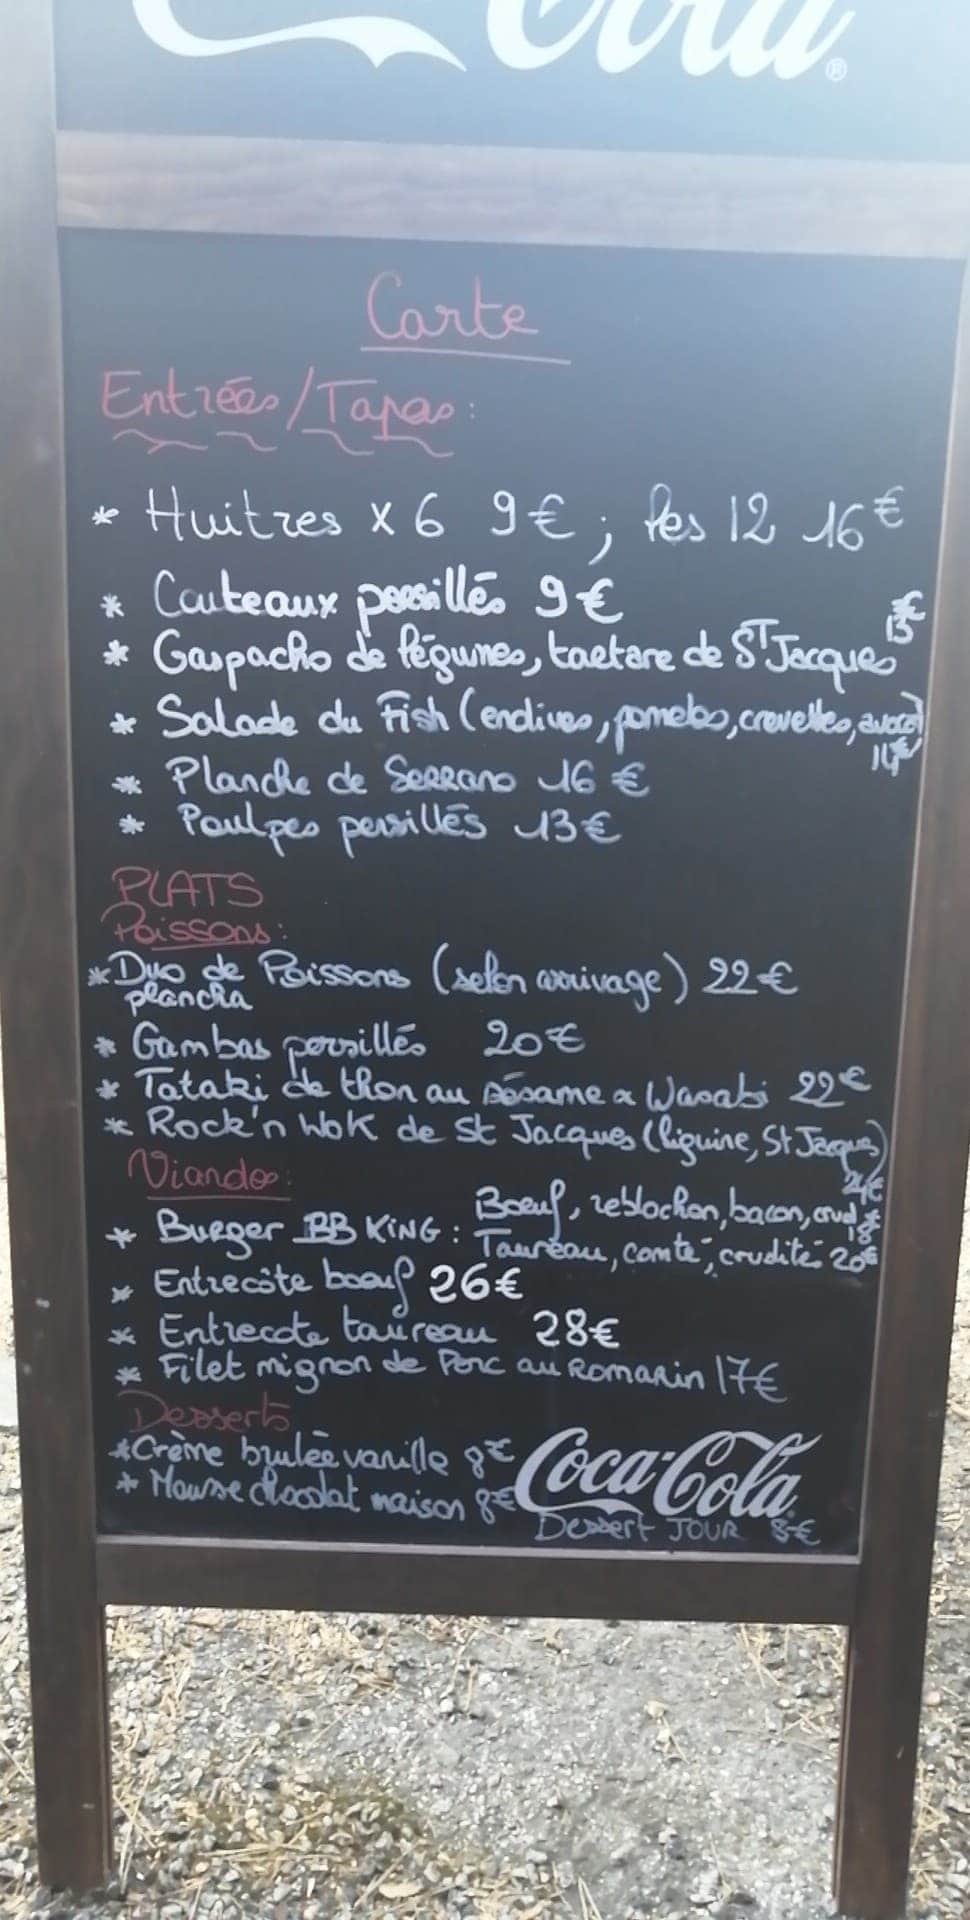 Cola®
Carte
Entrées/Tapas:
* Huitres x 6 9€ ; les 12 16€
* Couteaux persillés 9€
* Gaspacho de légumes, tartare de ST Jacques 13€
* Salade du Fish (endives, pomelos, crevettes, avocat) 14€
* Planche de Serrano 16 €
* Poulpes persillés 13€
PLATS
Poissons:
* Duo de Poissons (selon arrivage) 22€
plancha
* Gambas persillés 20€
* Tataki de thon au sésame & Wasabi 22€
* Rock'n Wok de St Jacques (liguine, St Jacques)
24€
Viandes:
* Burger BB KING : Boeuf, reblochon, bacon, crud 18€
Taureau, comté, crudité 20€
* Entrecôte boeuf 26€
* Entrecote taureau 28€
* Filet mignon de Porc au Romarin 17€
Desserts
* Crème brulée vanille 8€
* Mousse chocolat maison 8€
Coca-Cola
Dessert JOUR 8€